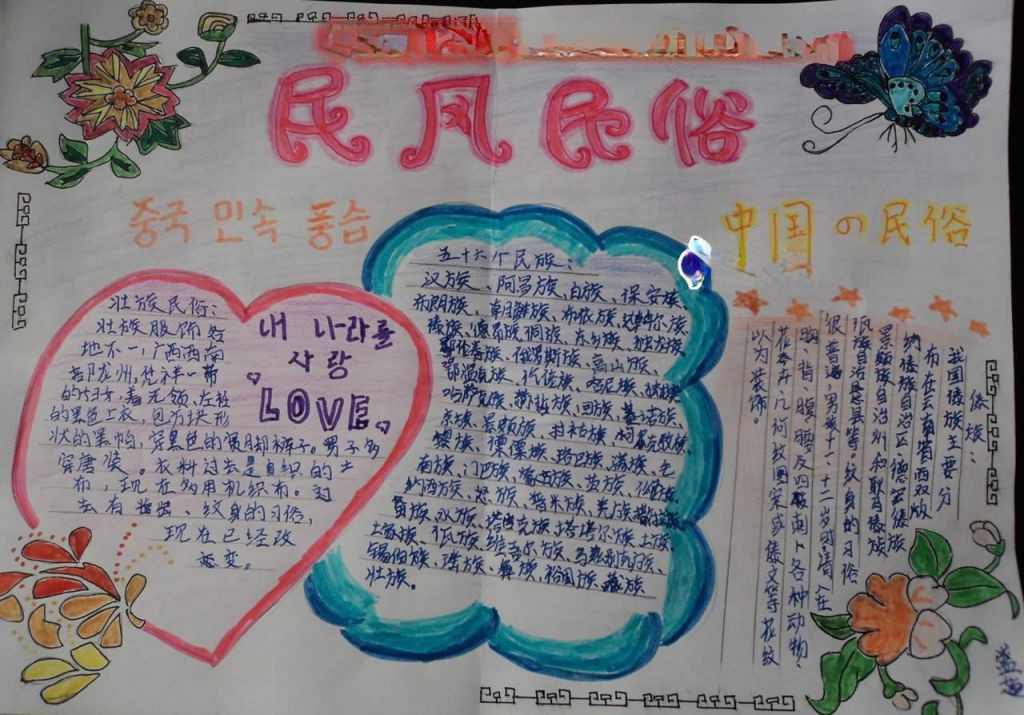 民风民俗
중국 민속 풍습
中国の民俗
壮族民俗:
壮族服饰各
地不一,广西西南
的妇女,着无领,左衽
的黑色上衣,包方块形
状的黑帕,穿黑色的宽月却裤子。男子多
穿唐装。衣料过去是自织的土
布,现在多用机织布。过
去有 纹身的习俗,
现在已经改
变。
내 나라를
사랑
LOVE
五十六个民族:
汉族、阿昌族、白族、保安族、
布朗族、布依族、达斡尔族
傣族、德昂族、侗族、东乡族、独龙族
鄂伦春族、俄罗斯族、高山族、
仡佬族、哈尼族、
哈萨克族、赫哲族、回族、基诺族、
京族、景颇族、柯尔克孜族、
黎族、傈僳族、珞巴族、满族、毛
南族、门巴族、蒙古族、苗族、仫佬族
纳西族、怒族、普米族、羌族
畲族、水族、塔吉克族、塔塔尔族、土族、
土家族、佤族、维吾尔族、乌孜别克族、
锡伯族、瑶族、彝族、裕固族、藏族、
壮族。
傣族:
我国傣族主要分
布在云南省西双版
纳傣族自治区、德宏傣族
景颇族自治州和耿马傣族
佤族自治县等,纹身的习俗
很普遍,男孩十一、十二岁时请人在
胸、背、腹、腰及四肢刺上各种动物、
花卉、几何纹图案或傣文等花纹
以为装饰。